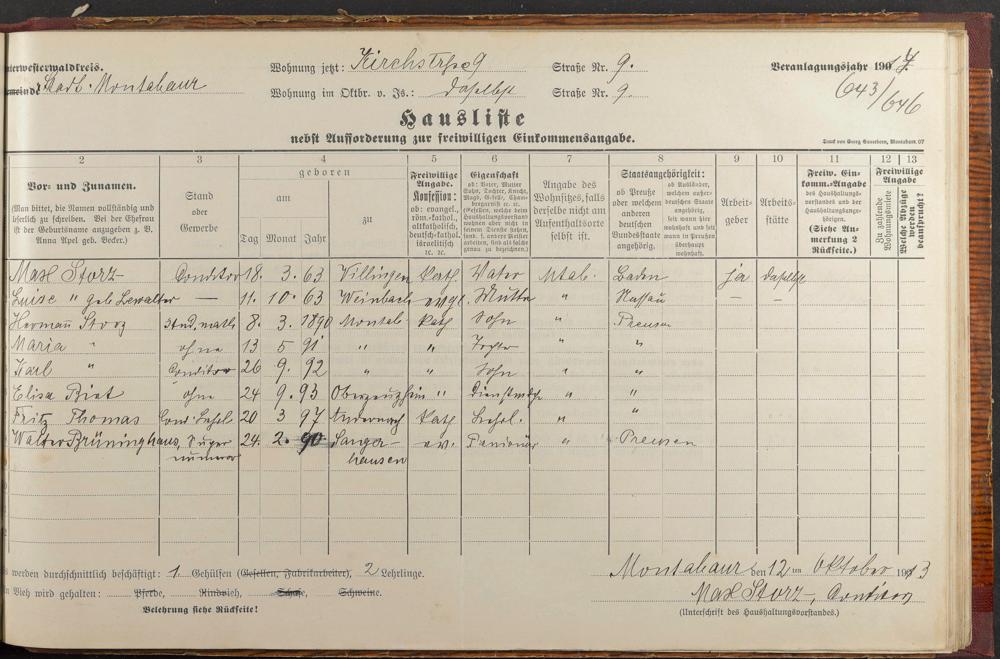 nterwesterwaldkreis. Wohnung jetzt: Kirchstrße 9 Straße Nr. 9. Veranlagungsjahr 1904
meinde Stadt-Montabaur Wohnung im Oktbr. v. Js.: daselbst Straße Nr. 9. 643/646
Hausliste
nebst Aufforderung zur freiwilligen Einkommensangabe.
Druck von Georg Sauerborn, Montabaur 07
2 3 4 5 6 7 8 9 10 11 12 13
Vor- und Zunamen.
(Man bittet, die Namen vollständig und leserlich zu schreiben. Bei der Ehefrau ist der Geburtsname anzugeben z. B. Anna Apel geb. Becker.)
Stand oder Gewerbe
geboren
am
Tag Monat Jahr
zu
Freiwillige Angabe.
Konfession:
ob: evangel., röm.-kathol., altkatholisch, deutsch-kathol., israelitisch ec. ec.
Eigenschaft
ob: Vater, Mutter Sohn, Tochter, Knecht, Magd, Gesell,
Angabe des Wohnsitzes, falls derselbe nicht am Aufenthaltsorte selbst ist.
Staatsangehörigkeit:
ob Preuße oder welchem anderen deutschen Bundesstaate angehörig.
ob Ausländer, welchem außerdeutschen Staate angehörig, seit wann hier wohnhaft und seit wann in Preußen überhaupt wohnhaft.
Arbeitgeber
Arbeitsstätte
Freiw. Einkomm.-Angabe
des Haushaltungsvorstandes und der Haushaltungsangehörigen.
(Siehe Anmerkung 2 Rückseite.)
Freiwillige Angabe
Zu zahlende Wohnungsmiete
Welche Abzüge werden beansprucht?
Max Storz Conditor 18. 3. 63 Villingen kath. Vater Mtab. Baden ja daselbst
Luise " geb Lewalter — 11. 10. 63 Weinbach evgl. Mutter " Nassau — —
Hermann Storz stud. math 8. 3. 1890 Montab. kath Sohn " Preusen
Maria " ohne 13 5 91 " " Tochter " "
Karl " Conditor 26 9. 92 " " Sohn " "
Elisa ohne 24 9. 93 " Dienstmdch " "
Fritz Thomas Cond. Lehrl. 20 3 97 Andernach kath Lehrl. " "
Walter Brüninghaus, Super 24. 2. 90 Sanger- ev. Pensionär " Preusen
nummerar hausen
s werden durchschnittlich beschäftigt: 1 Gehülfen (Gesellen, Fabrikarbeiter), 2 Lehrlinge.
n Vieh wird gehalten: Pferde, Rindvieh, Schafe, Schweine.
Belehrung siehe Rückseite!
Montabaur den 12 ten Oktober 1913
Max Storz, Conditor
(Unterschrift des Haushaltungsvorstandes.)